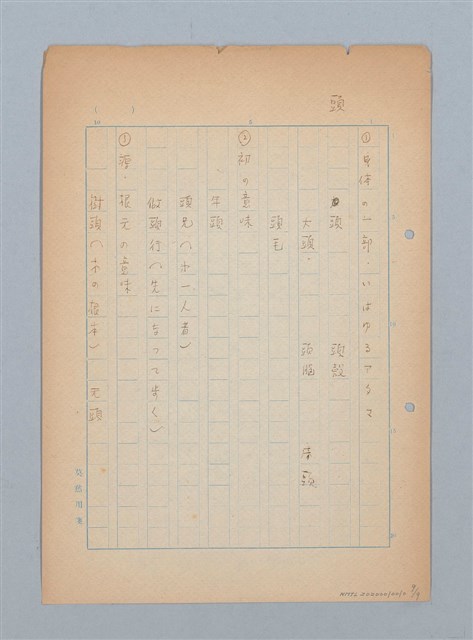 頭
① 身体の一部・いはゆるアタマ
頭 頭殻
大頭・ 頭腦 牛頭
頭毛
② 初の意味
年頭
頭兄(オ一人者)
做頭行(先に立つて歩く)
③ 源・根元の意味
樹頭(木の根本) 元頭